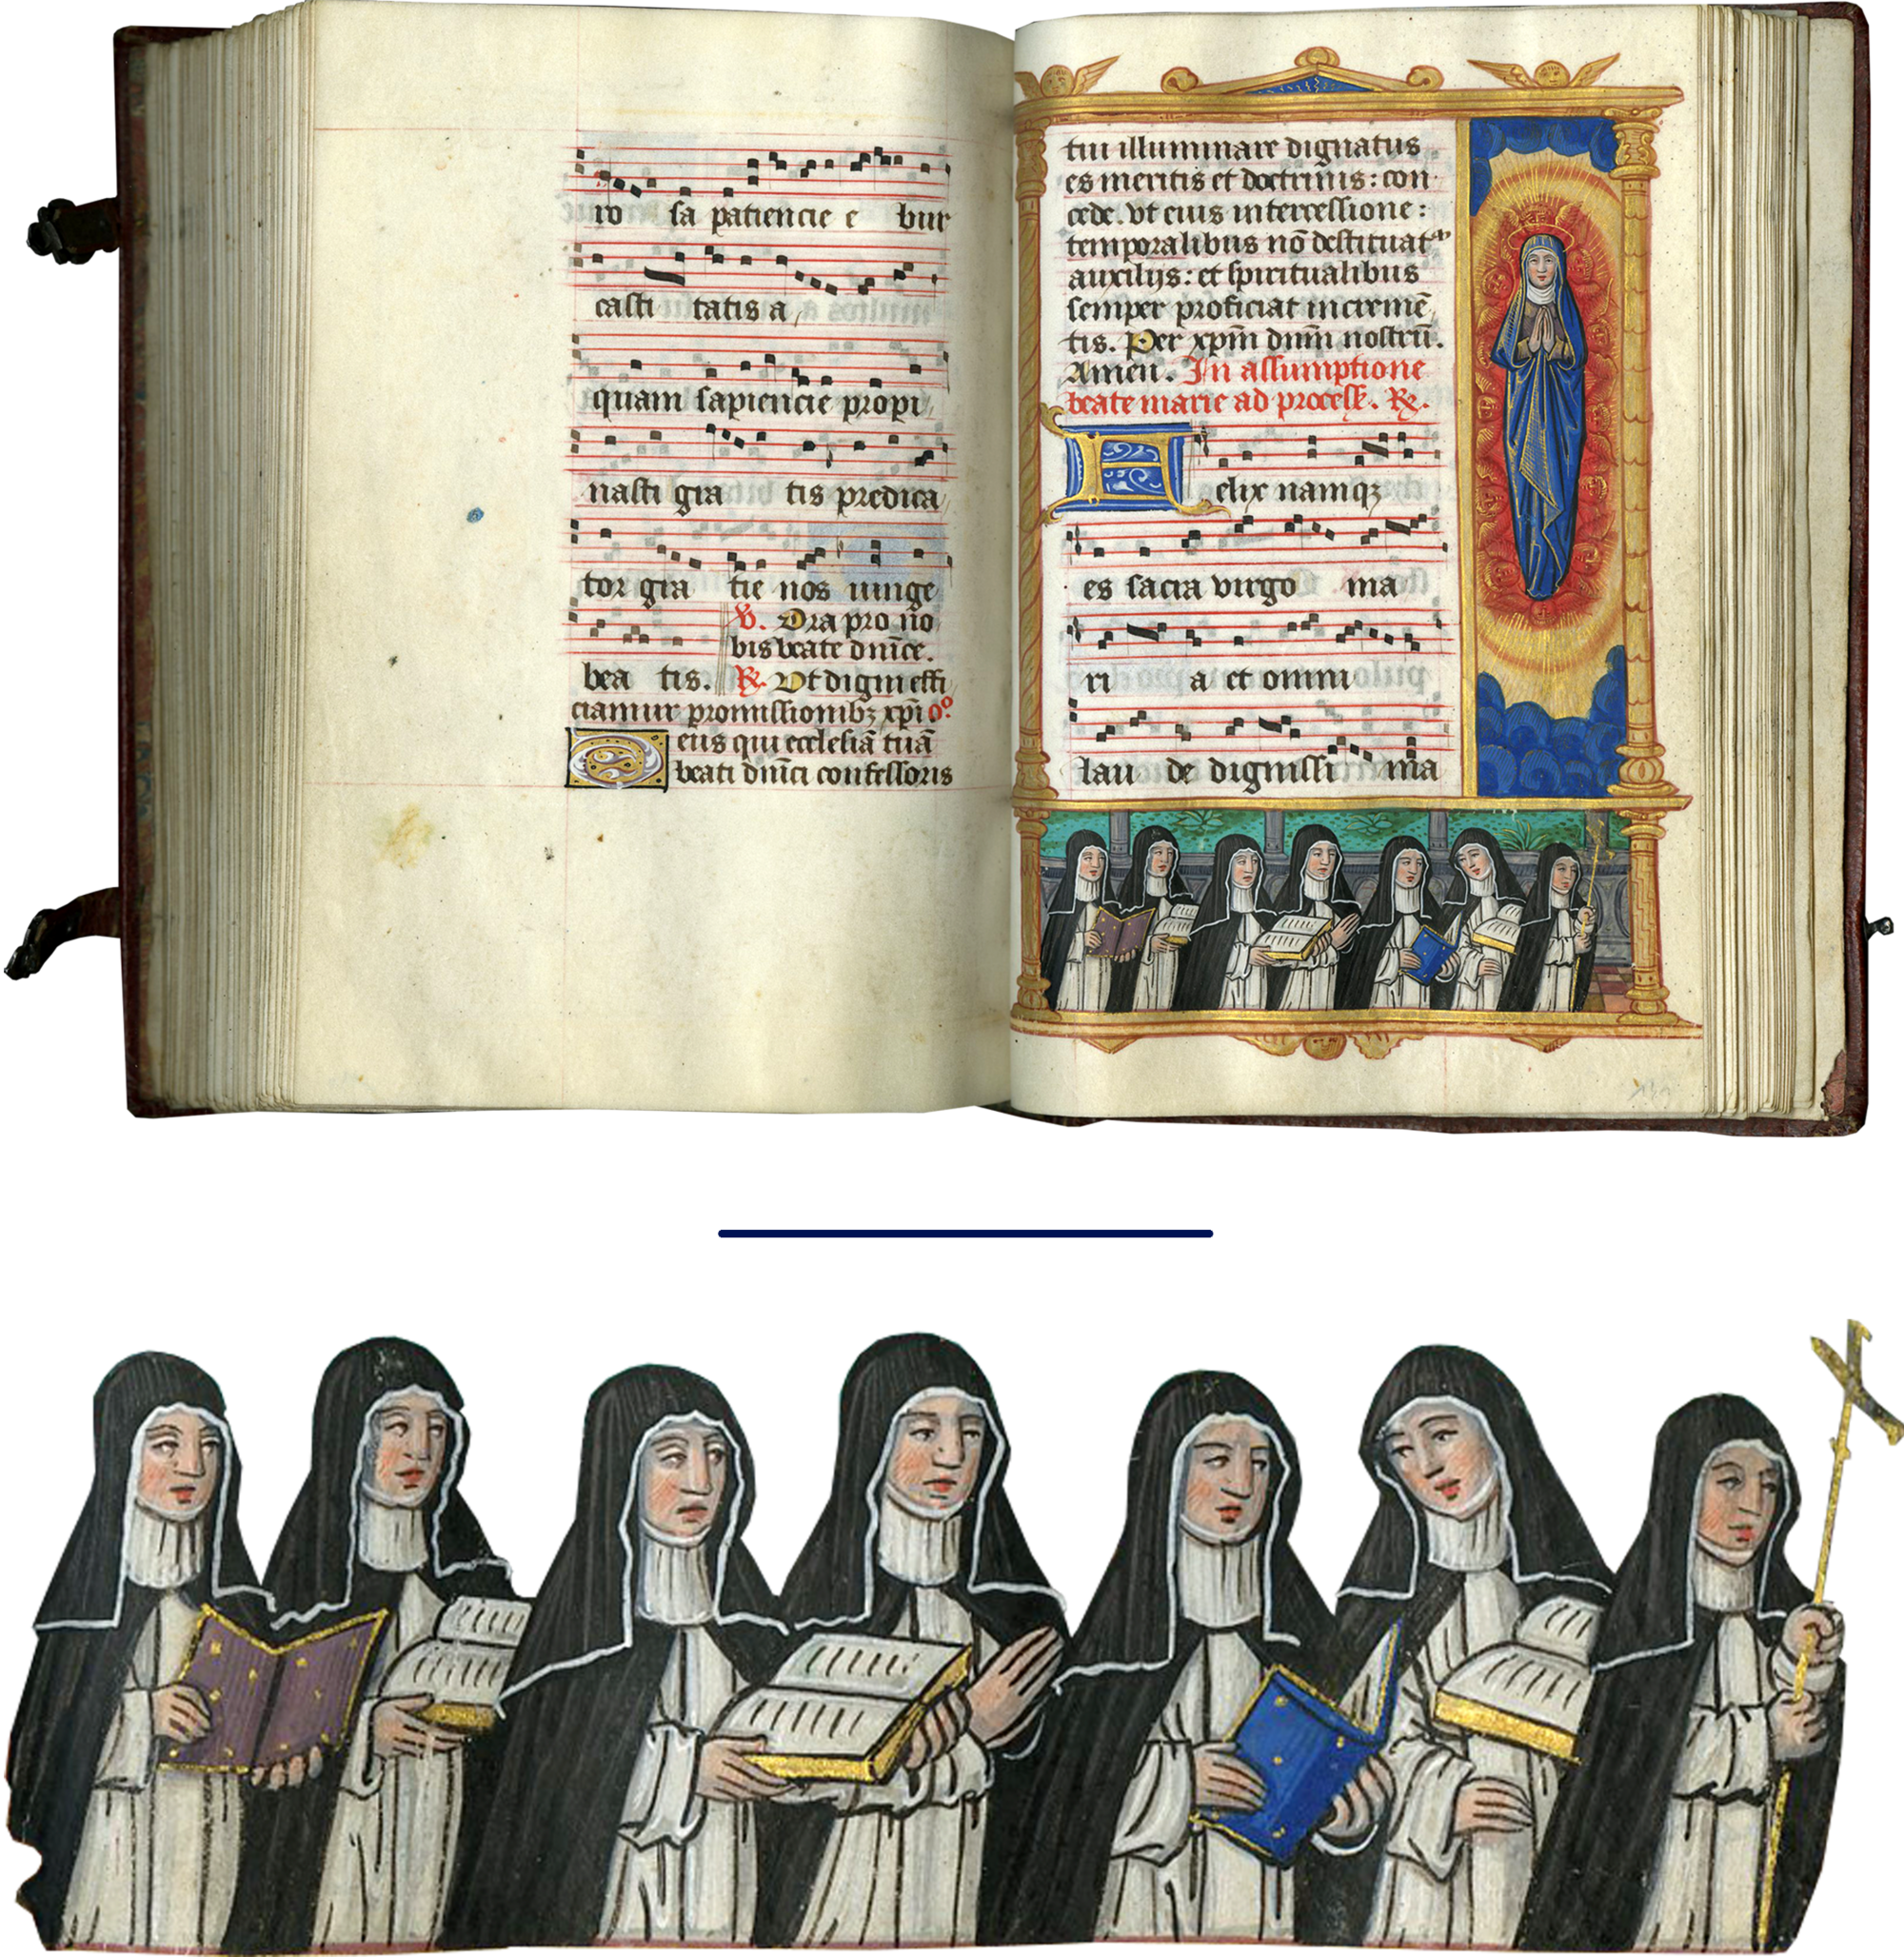 ro sa patiencie e bur
casti tatis a
quam sapiencie propi
nasti gra tis predica
tor gra tie nos iunge
bea tis.
V. Ora pro no
bis beate dnice.
R. Vt digni effi
ciamur promissionibꝫ xpi oº
Deus qui ecclesiā tuā
beati dnici confessoris
tui illuminare dignatus
es meritis et doctrinis: con
cede. vt eius intercessione:
temporalibus nō destituat᷑
auxilijs: et spiritualibus
semper proficiat incremē
tis. Per xpm dnm nostrū.
Amen. In assumptione
beate marie ad process. R.
Felix namqꝫ
es sacra virgo ma
ri a et omni
lau de dignissi ma